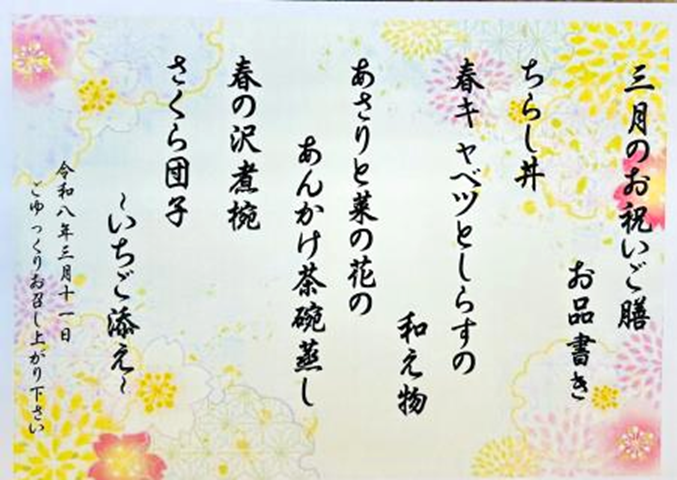 三月のお祝いご膳
お品書き
ちらし丼
春キャベツとしらすの
和え物
あさりと菜の花の
あんかけ茶碗蒸し
春の沢煮椀
さくら団子
~いちご添え~
令和八年三月十一日
ごゆっくりお召し上がり下さい